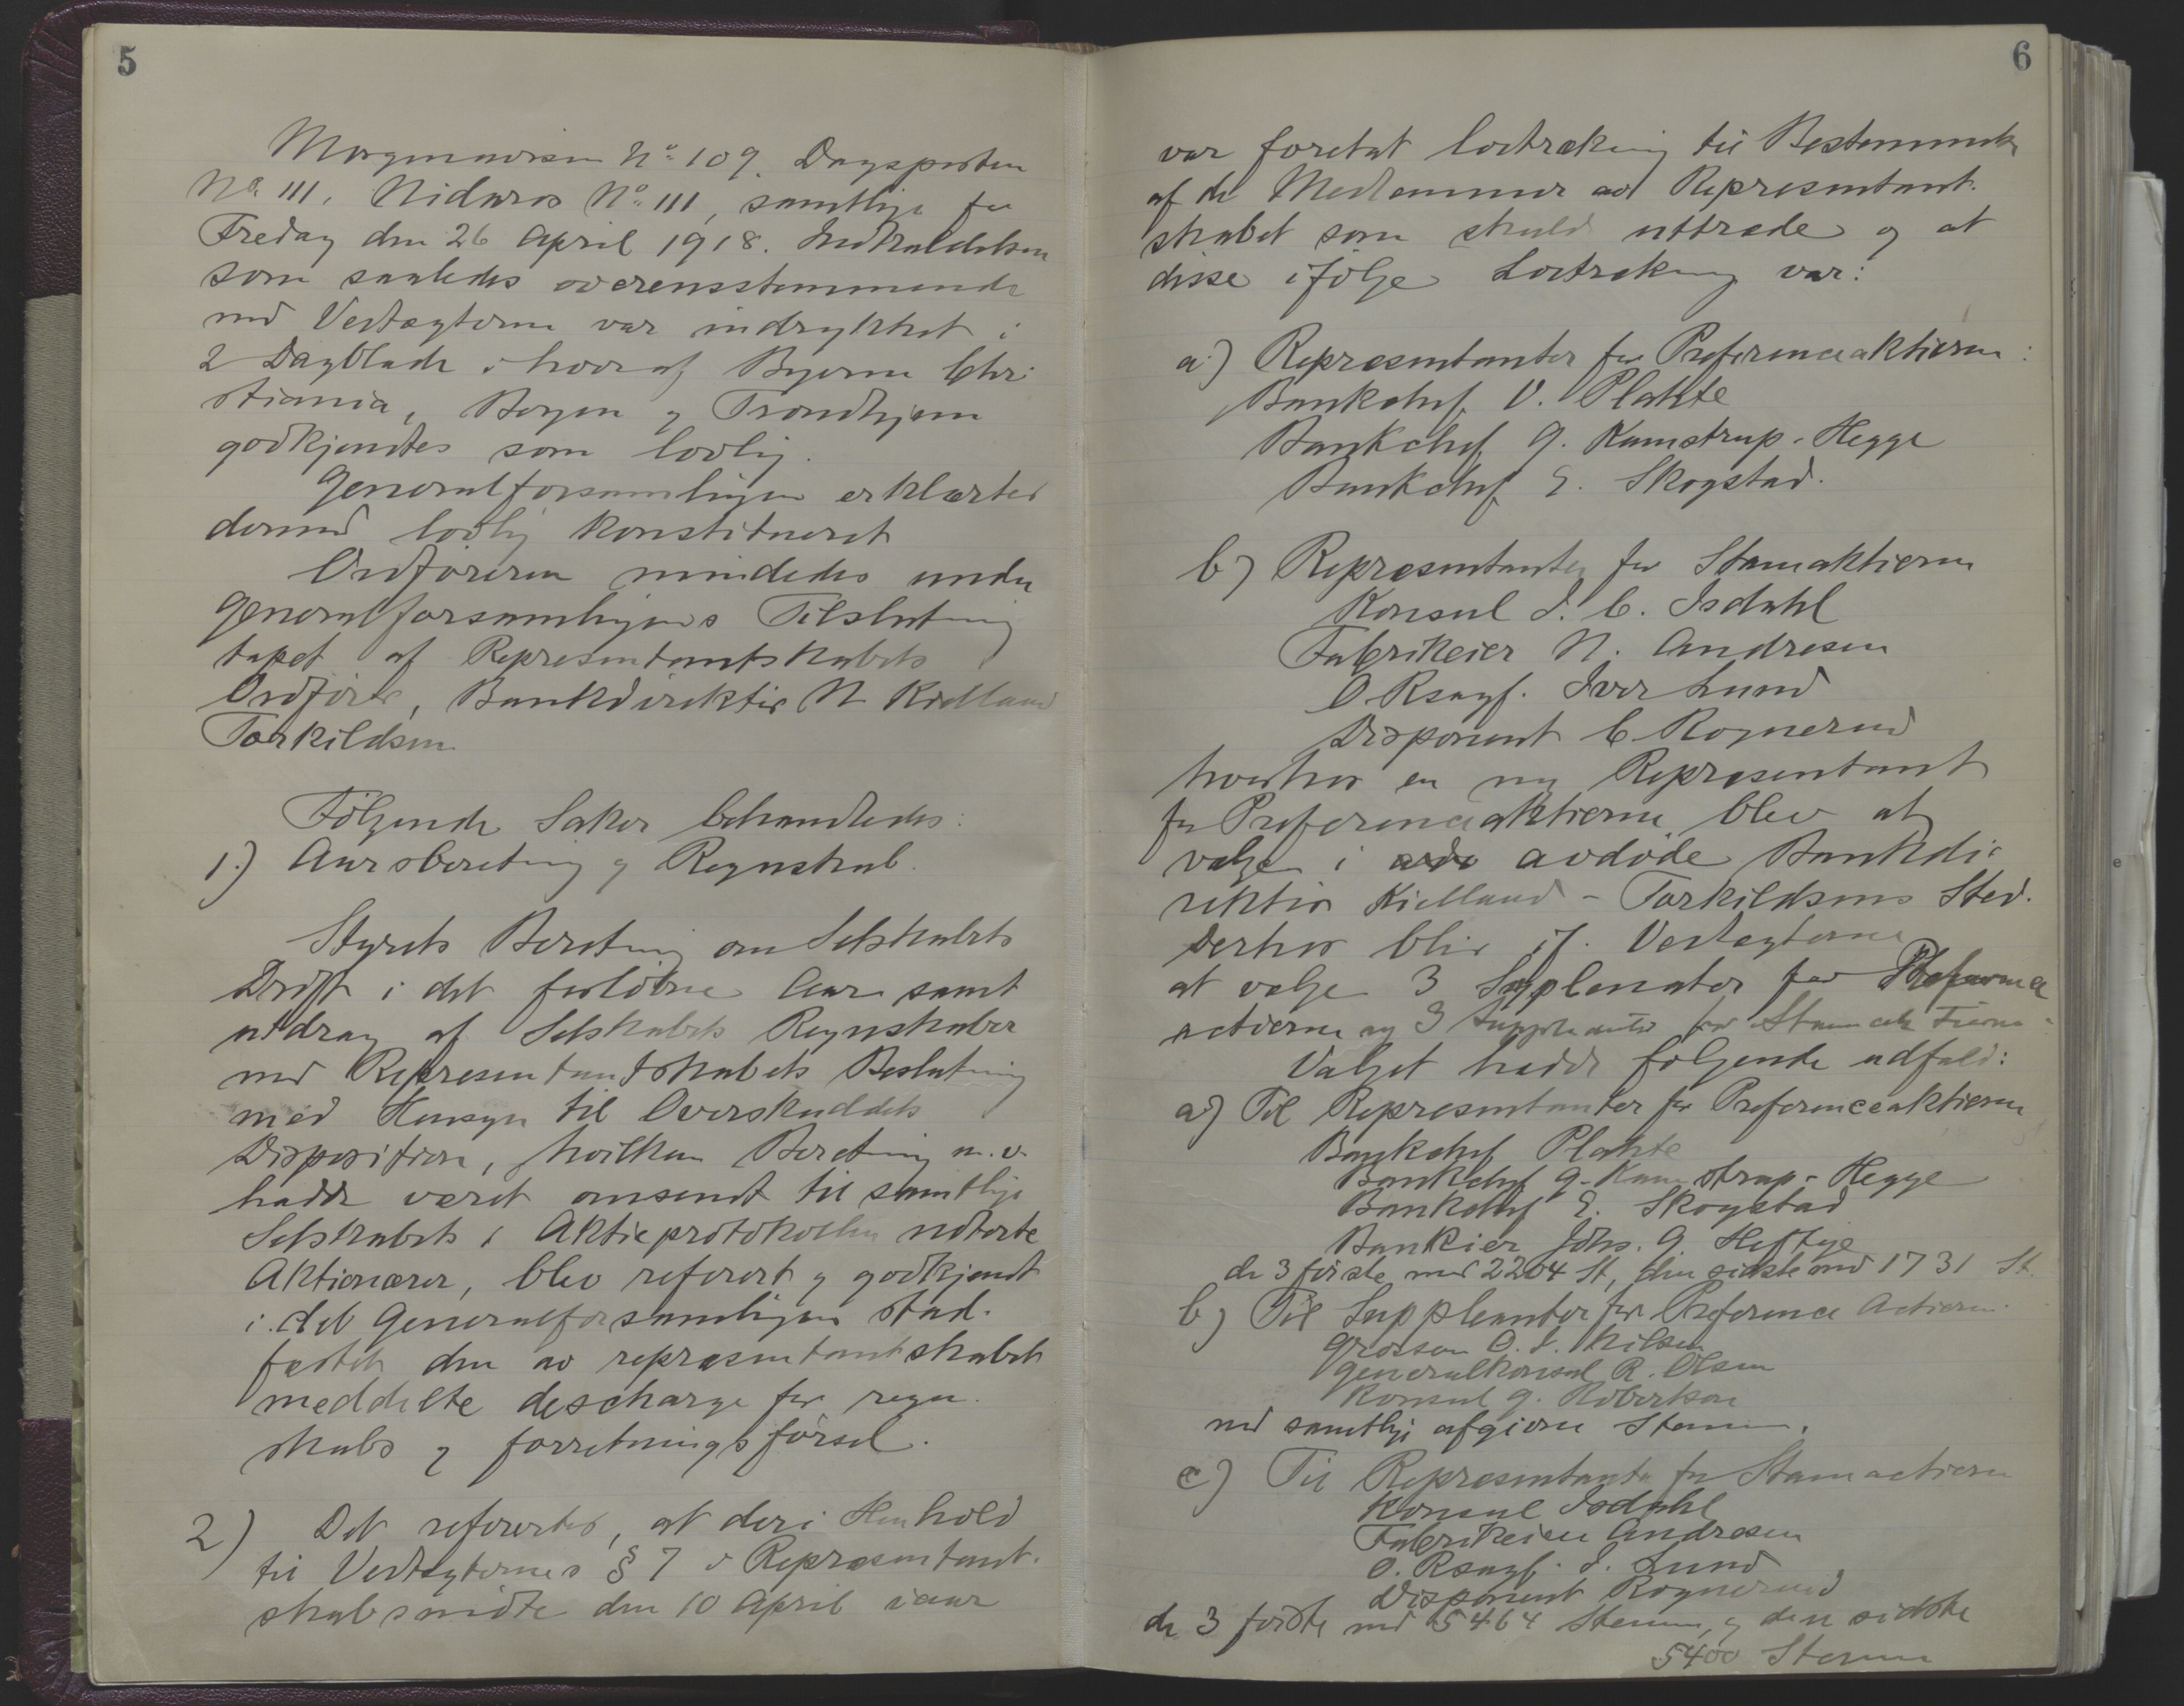 5
Morgenavisen No 109. Dagsposten
No 111, Nidaros No 111, samtlige for
Fredag den 26 April 1918. Indkaldelsen
som saaledes overensstemmende
med Vedtægterne var indrykket i
2 Dagblade i hver af Byerne Chri-
stiania, Bergen og Trondhjem
godkjendtes som lovlig.
Generalforsamlingen erklærtes
dermed lovlig konstitueret
Ordføreren mindedes under
Generalforsamlingens Tilslutning
tapet af Representantskabets
Ordfører, Bankdirektør N Kielland
Torkildsen
Følgende Saker behandledes:
1.) Aarsberetning og Regnskab.
Styrets Beretning om Selskabets
Drift i det forløbne Aar samt
utdrag af Selskabets Regnskaber
med Representantskabets Beslutning
med Hensyn til Overskuddets
Disposition, hvilken Beretning m.v.
hadde været omsendt til samtlige
Selskabets i Aktieprotokollen noterte
Aktionærer, blev referert og godkjendt
i det Generalforsamlingen stad-
fæstet den av repræsentantskabet
meddelte descharge for regn-
skabs og forretningsførsel.
2) Det refereertes, at der i Henhold
til Vedtægternes § 7 i Repræsentant-
skabsmøte den 10 April iaar
6
var foretat lodtrækning til Bestemmelse
af de Medlemmer av Repræsentant-
skabet som skulde uttræde og at
disse ifølge Lodtrækning var:
a.) Repræsentanter for Præferenceaktierne:
Bankchef V. Plahte
Bankchef G. Kamstrup-Hegge
Bankchef E. Skogstad.
b) Repræsentanter for Stamaktierne
Konsul J. C. Isdahl
Fabrikeier N. Andresen
O.Rsagf. Iver Lund
Disponent C Rognerud
hvorhos en ny Repræsentant
for Præferenceaktierne blev at
vælge i avdøde Bankdi-
rektør Kielland-Torkildsens Sted.
Derhos blir if. Vedtægterne
at vælge 3 Suppleanter for Preference
actierne og 3 Suppleanter for Stamaktierne
Valget hadde følgende udfald:
a) Til Repræsentanter for Præferenceaktierne
Bankchef Plahte
Bankchef G. Kamstrup-Hegge
Bankchef E. Skogstad
Bankier Johs. G. Heftye
de 3 første med 2204 St, den sidste med 1731 St.
b) Til Suppleanter for Præference Actierne.
Grosserer O. J. Nilsen
Generalkonsul R. Olsen
Konsul G. Robertson
med samtlige afgivne Stemmer.
c) Til Repræsentanter for Stamactierne
Konsul Isdahl
Fabrikeier Andresen
O. Rsagf. I. Lund
Disponent Rognerud
de 3 første med 5464 Stemmer, og den sidste
5400 Stemmer